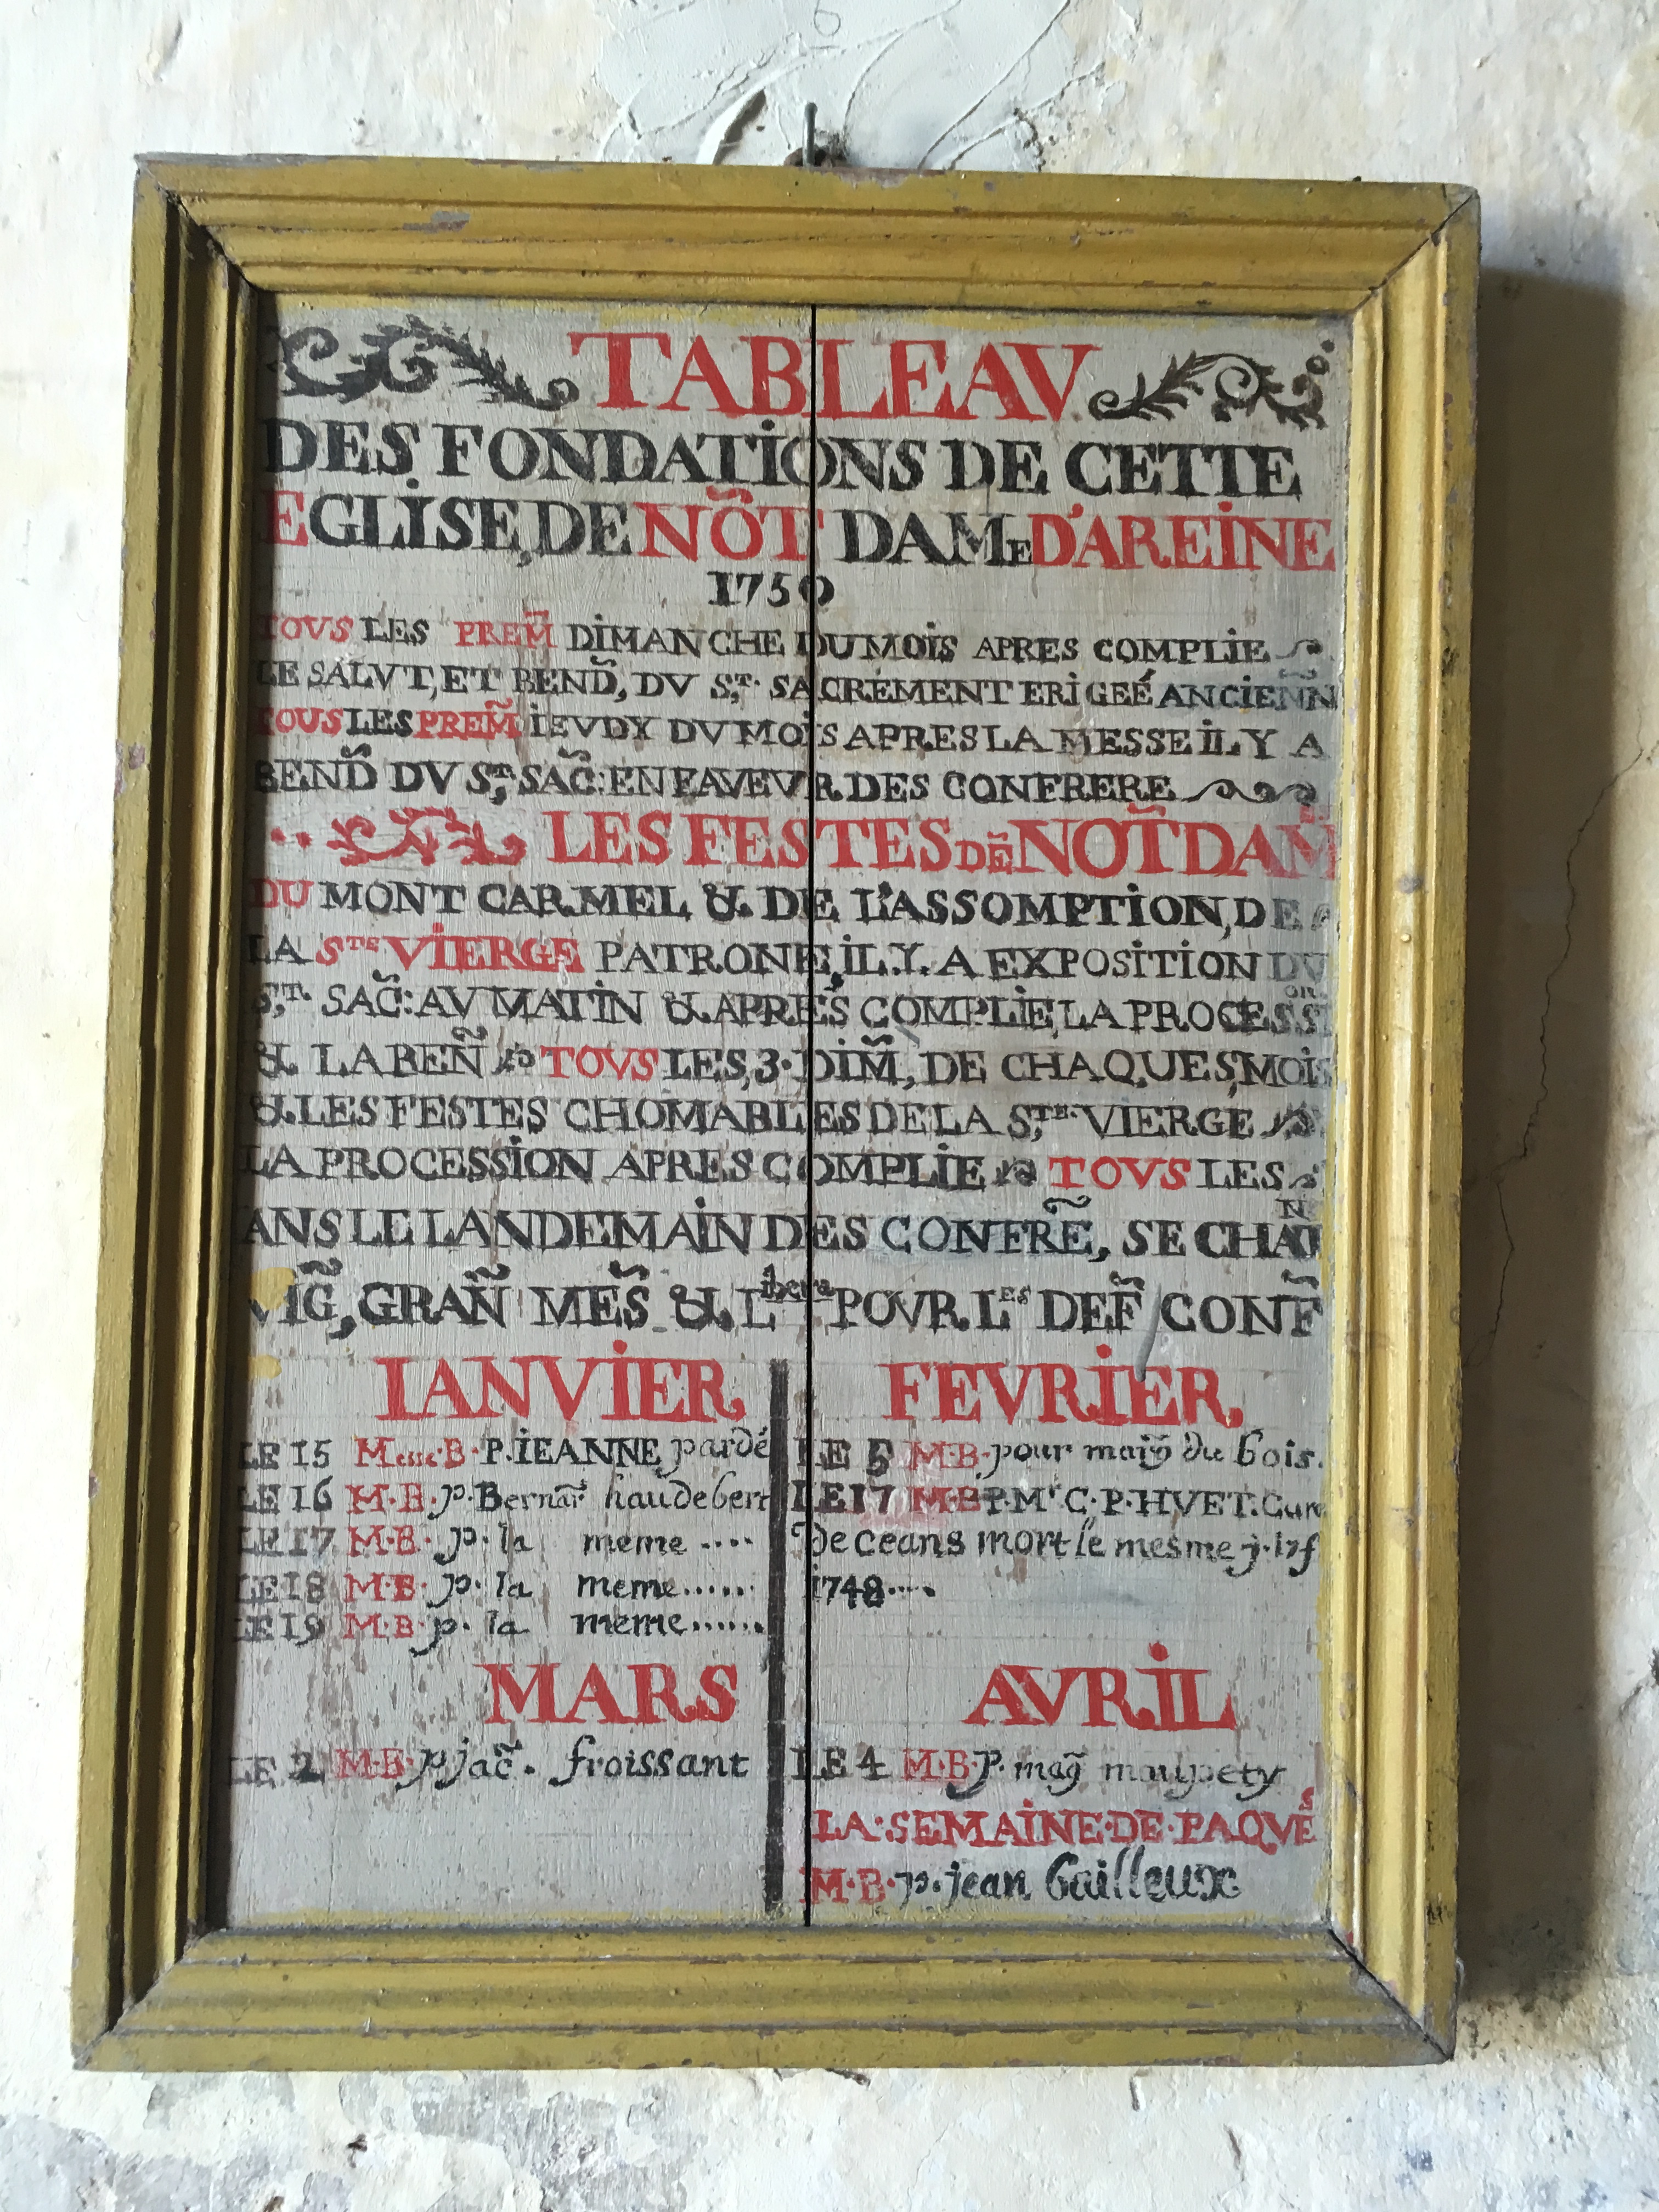 TABLEAV
DES FONDATIONS DE CETTE
EGLISE, DE NÕT DAME D'AREINE
1750
TOVS LES PREM̃ DIMANCHE DU MOIS APRES COMPLIE
LE SALVT, ET BEND̃, DV St. SACRÉMENT ERIGEÉ ANCIEÑN
TOUS LES PREM̃ IEVDY DV MOIS APRES LA MESSE IL Y A
BEND̃ DV St. SAC̃: EN FAVEVR DES CONFRERE
LES FESTES DẼ NOT̃ DAM̃
DU MONT CARMEL & DE L'ASSOMPTION, DE
LA Ste VIERGE PATRONE, IL. Y. A EXPOSITION DV
St. SAC̃: AV MATIN & APRES COMPLIE, LA PROCESSION
& LA BEÑ TOVS LES, 3. DIM̃, DE CHAQUES, MOIS
& LES FESTES CHOMABLES DE LA Ste. VIERGE
LA PROCESSION APRES COMPLIE TOVS LES
ANS LE LANDEMAIN DES CONFRẼ, SE CHAN
VIG̃, GRAÑ MES̃ & Libera POVR Les DEF̃ CONF̃
IANVIER
LE 15 Messe B. P. IEANNE pardé
LE 16 M. B. p. Bernar̃ haudebert
LE 17 M. B. p. la meme ....
LE 18 M. B. p. la meme......
LE 19 M. B. p. la meme......
FEVRIER
LE 5 M. B. pour maig̃ du bois.
LE 17 M. B. P. Mr C. P. HVET. Cure
de ceans mort le mesme j.
1748....
MARS
LE 2 M. B. p jac̃. froissant
AVRIL
LE 4 M. B. P. mag̃ maupety
LA. SEMAINE. DE. PAQVES
M. B. p. jean Cailleux